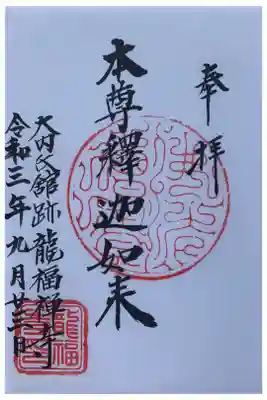 奉拝
本尊釋迦如来
大内氏館跡龍福禅寺
令和三年九月廿三日
龍福